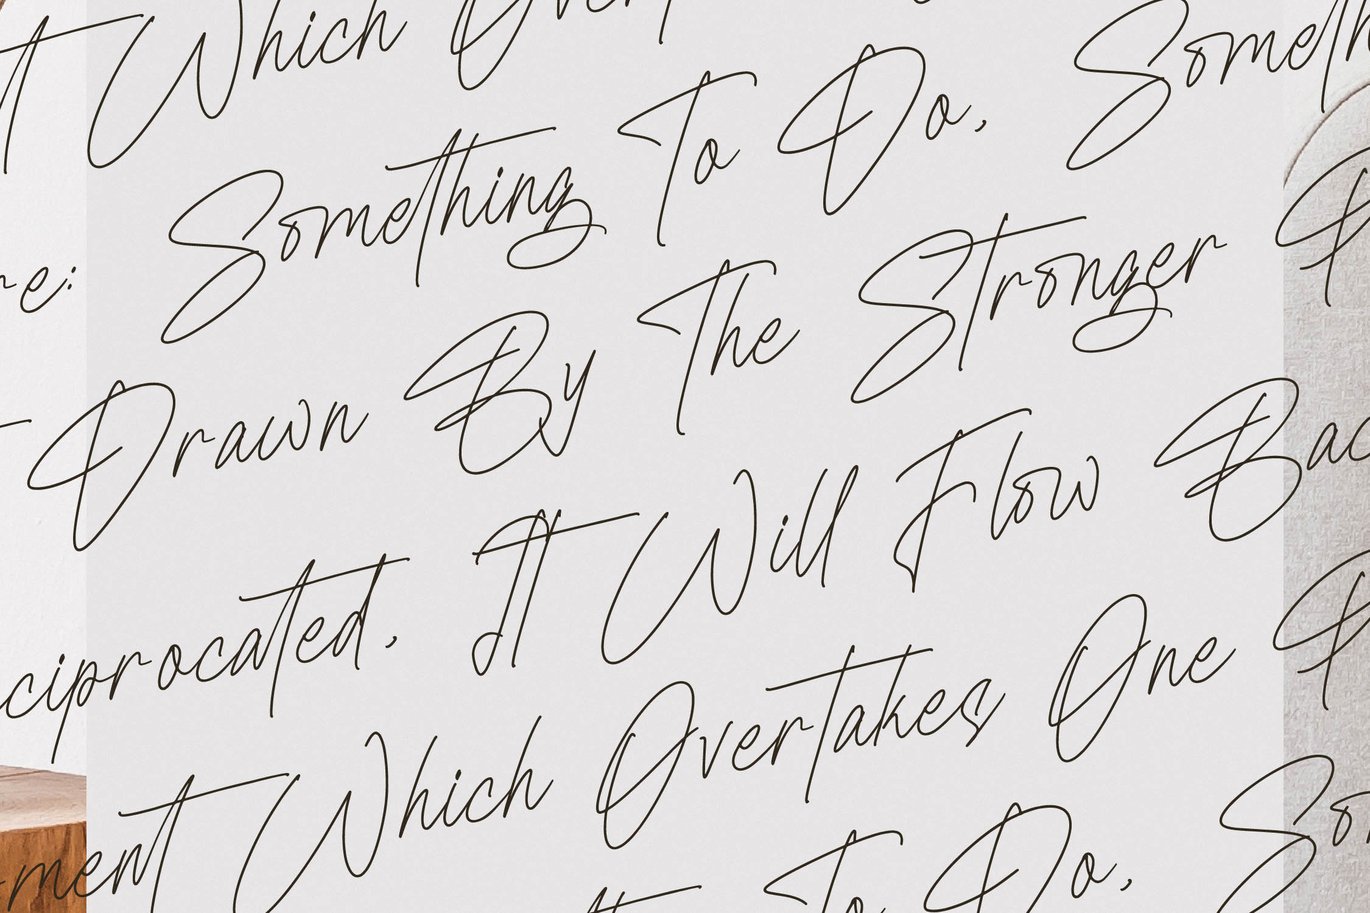 t Which Overt
Something To Do, Someth
re: Drawn By The Stronger P
ciprocated, It Will Flow Bac
ment Which Overtakes One P
To Do, So